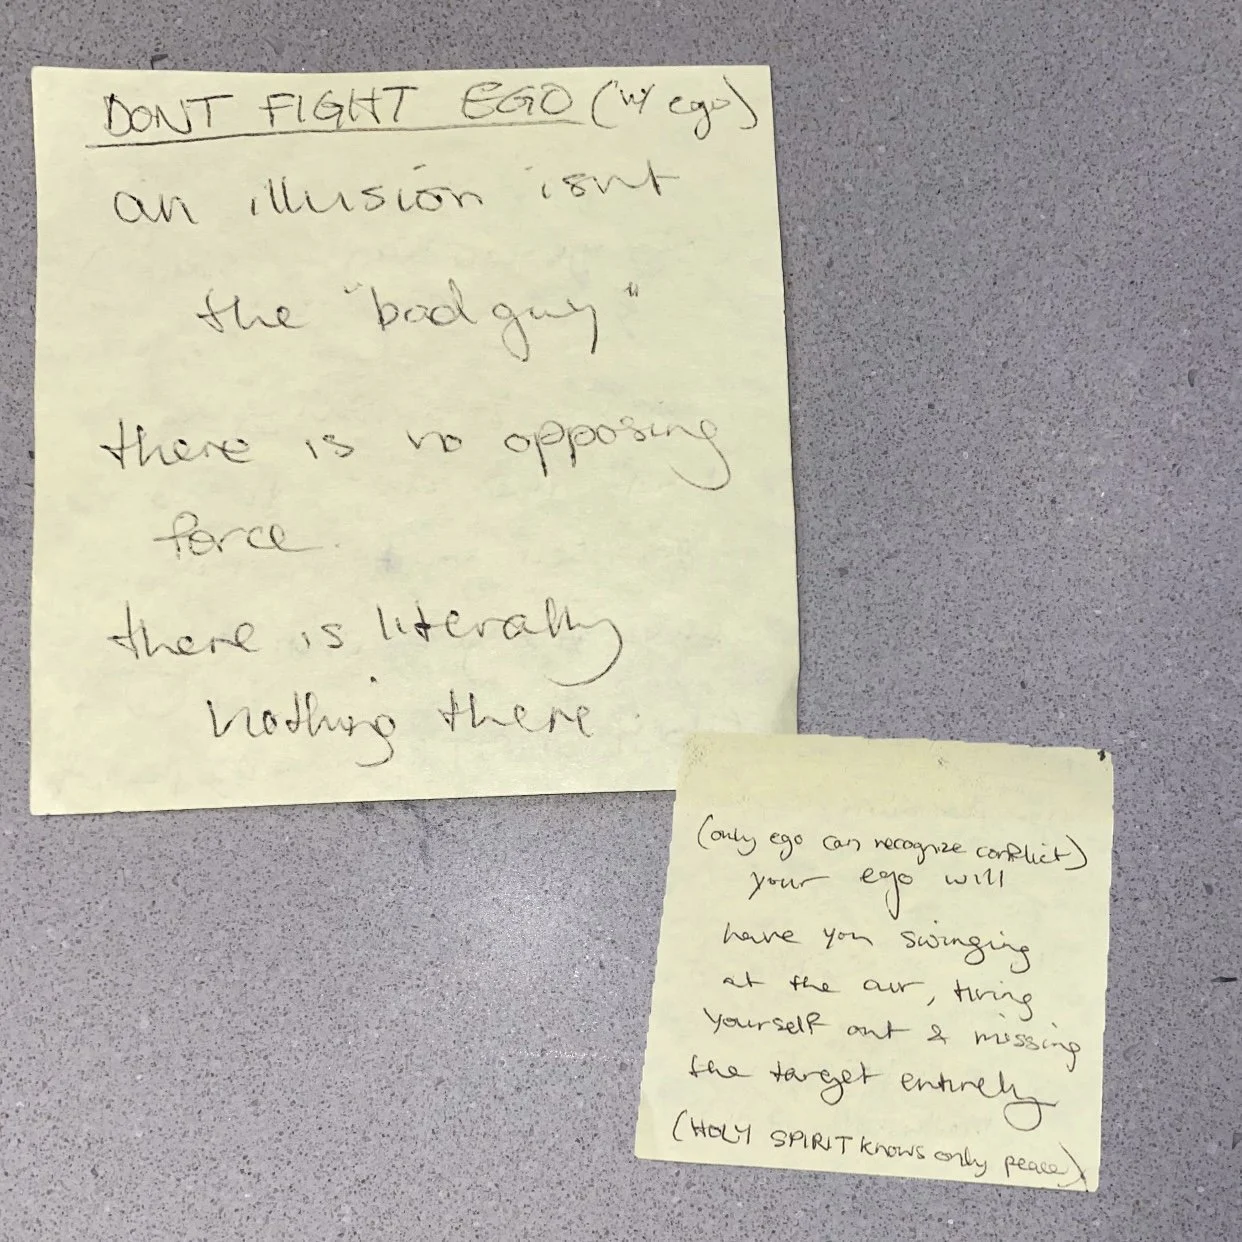 DONT FIGHT EGO (w/ ego)
an illusion isnt
the "bad guy"
there is no opposing
force.
there is literally
nothing there.
(only ego can recognize conflict)
your ego will
have you swinging
at the air, tiring
yourself out & missing
the target entirely
(HOLY SPIRIT knows only peace)